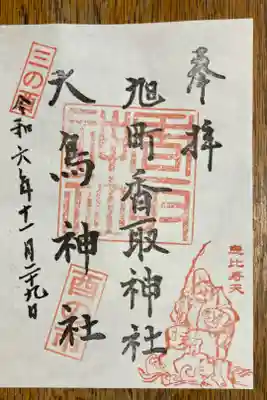 奉拝
旭町香取神社
大鳥神社
三の酉
令和六年十一月二十九日
酉の市
恵比寿天